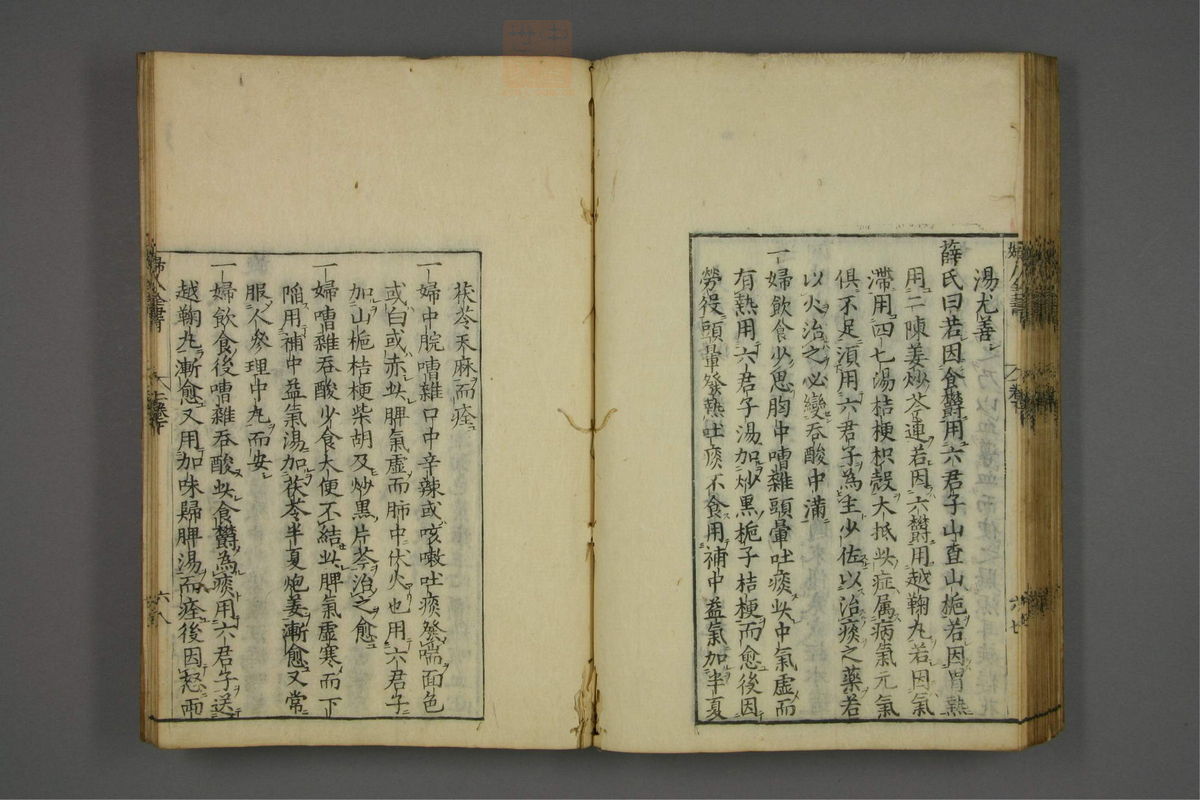 湯尤善
薛氏曰若因食欝用六君子山査山栀若因胃熱
用二陳姜炒芩連若因六欝用越鞠丸若因氣
滯用四七湯桔梗枳殼大抵此症属病氣元氣
俱不足湏用六君子為主少佐以治痰之藥若
以火治之必變吞酸中滿
一婦飲食少思胸中嘈雜頭暈吐痰此中氣虚而
有熱用六君子湯加炒黑栀子桔梗而愈後因
勞役頭暈發熱吐痰不食用補中益氣加半夏
茯苓天麻而痊
一婦中脘嘈雜口中辛辣或咳嗽吐痰發喘面色
或白或赤此脾氣虚而肺中伏火也用六君子
加山栀桔梗柴胡及炒黑片芩治之愈
一婦嘈雜吞酸少食大便不結此脾氣虚寒而下
陷用補中益氣湯加茯苓半夏炮姜漸愈又常
服人參理中丸而安
一婦飲食後嘈雜吞酸此食欝為痰用六君子送
越鞠丸漸愈又用加味歸脾湯而痊後因怒両